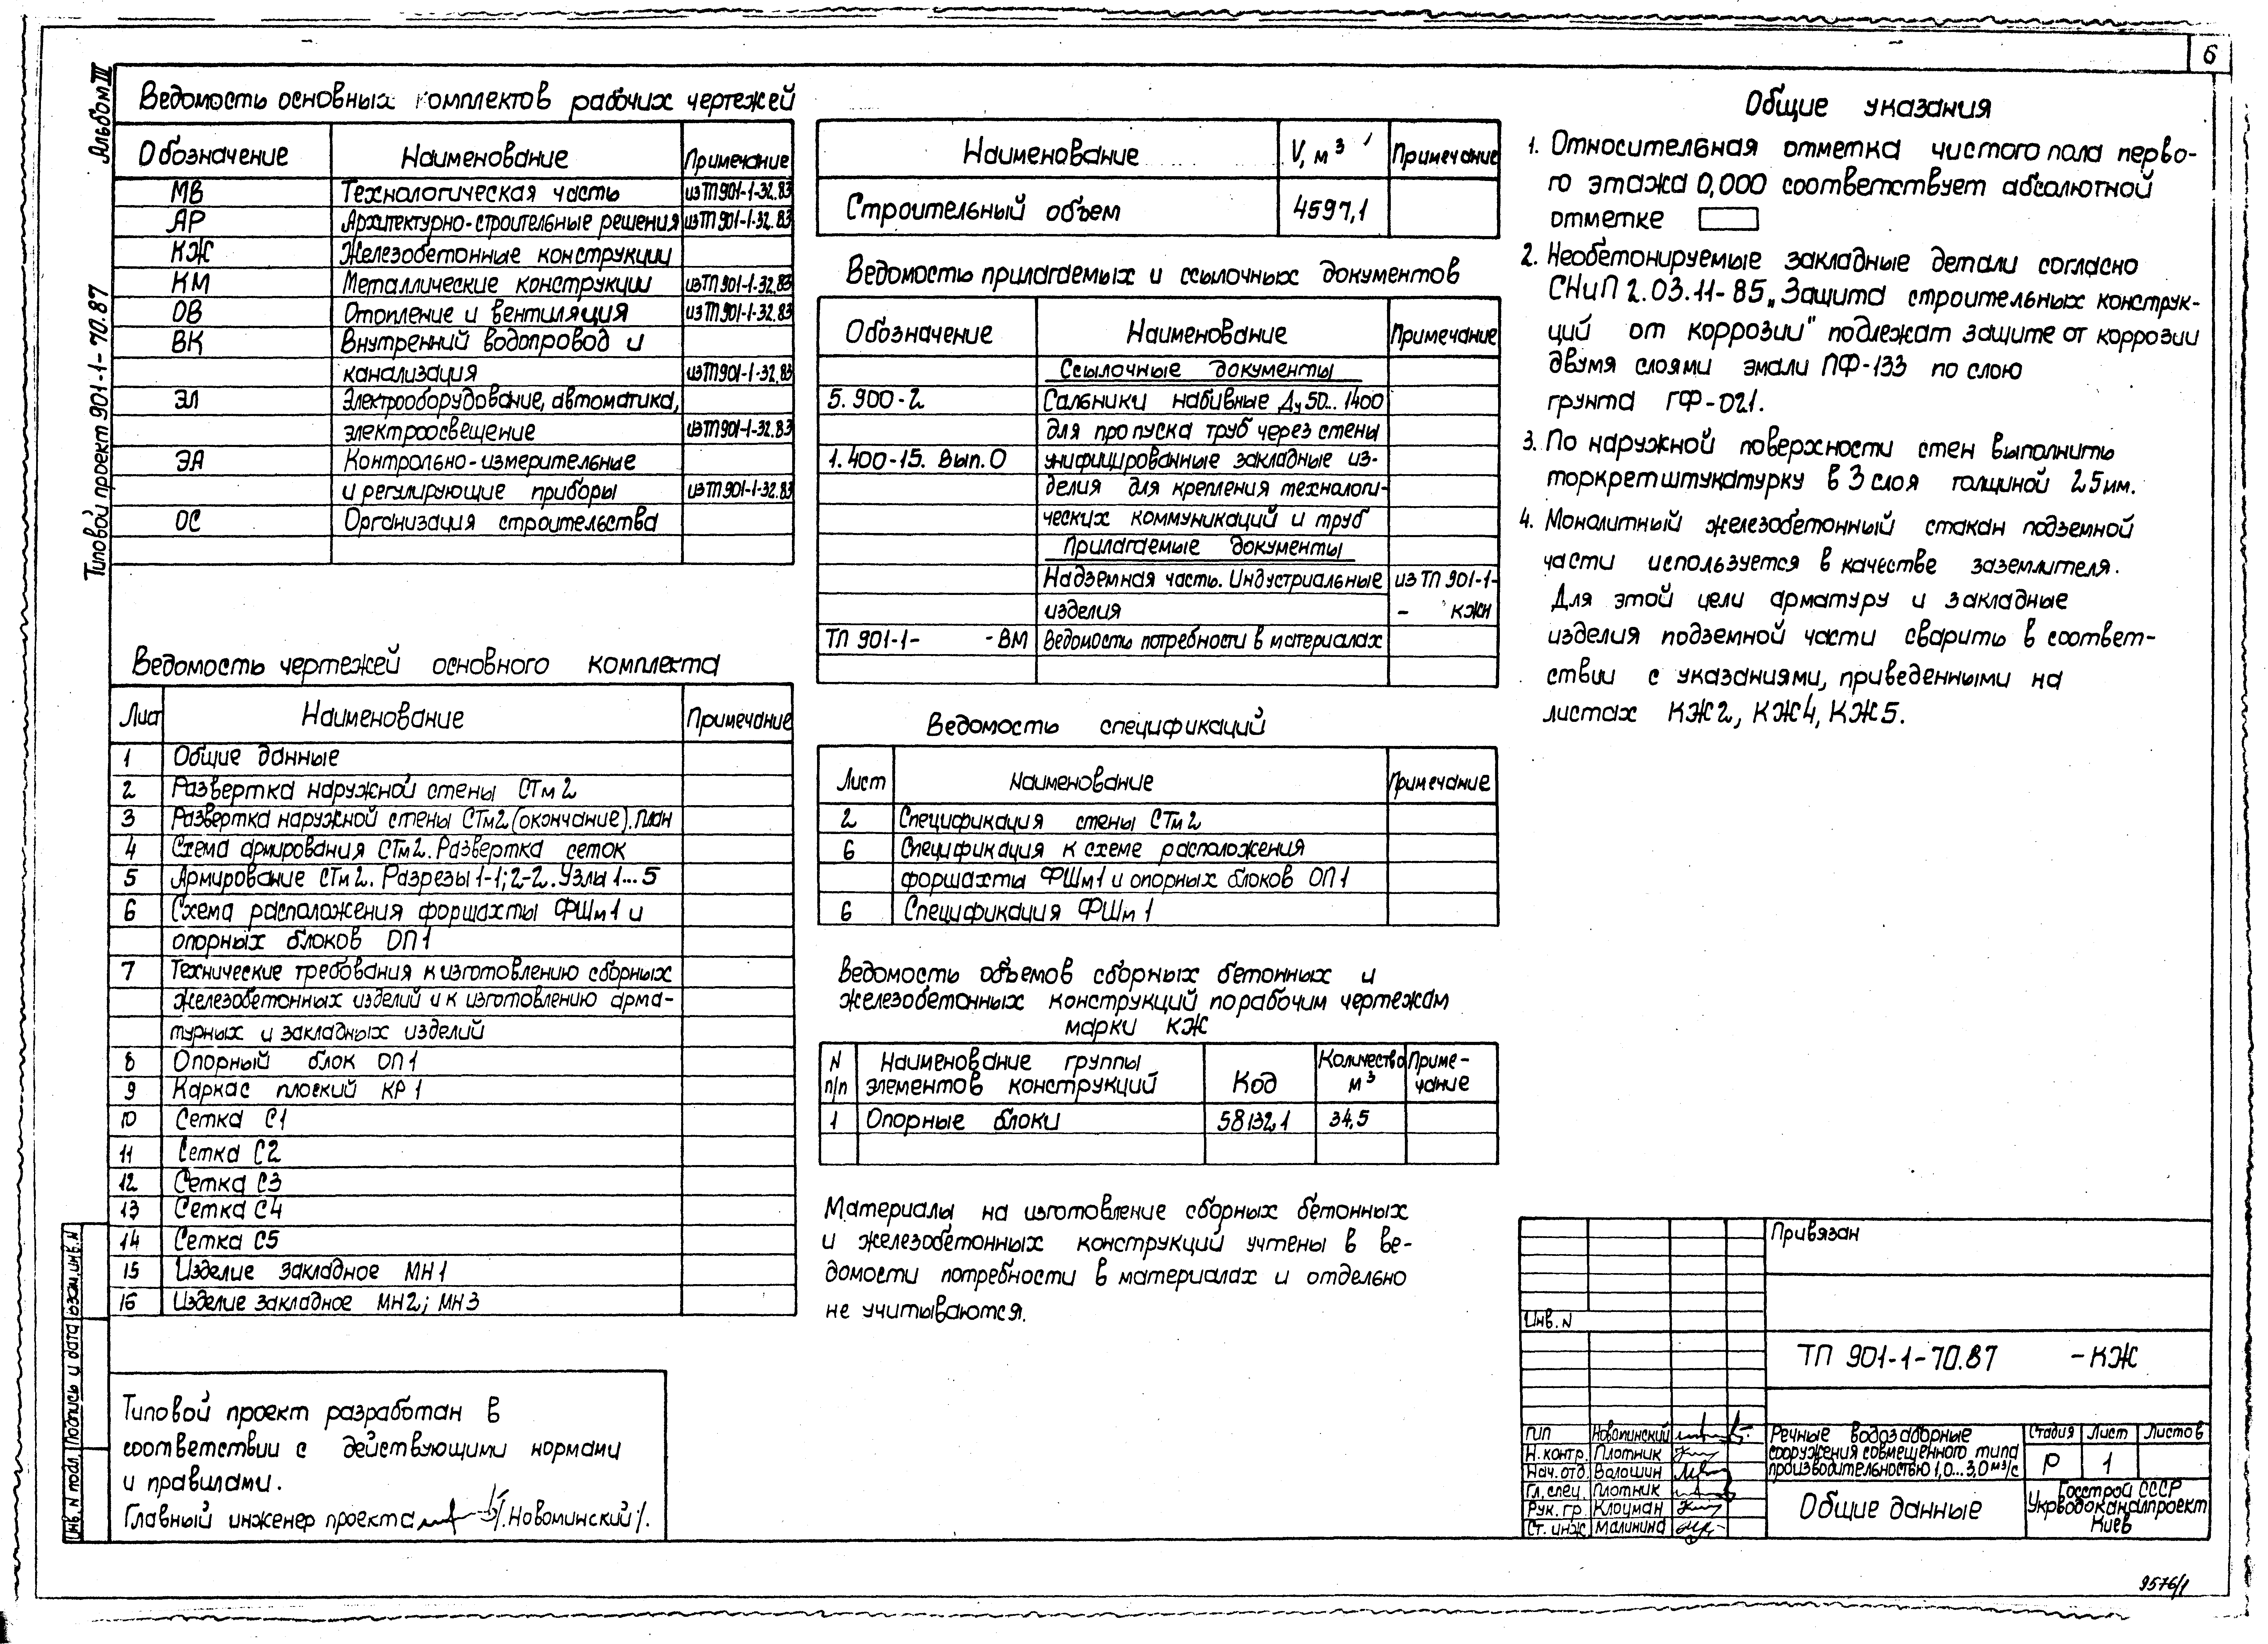 6
Альбом III
Типовой проект 901-1-70.87
Ведомость основных комплектов рабочих чертежей
Обозначение Наименование Примечание
МВ Технологическая часть из ТП 901-1-32.83
АР Архитектурно-строительные решения из ТП 901-1-32.83
КЖ Железобетонные конструкции
КМ Металлические конструкции из ТП 901-1-32.83
ОВ Отопление и вентиляция из ТП 901-1-32.83
ВК Внутренний водопровод и
канализация из ТП 901-1-32.83
ЭЛ Электрооборудование, автоматика,
электроосвещение из ТП 901-1-32.83
ЭА Контрольно-измерительные
и регулирующие приборы из ТП 901-1-32.83
ОС Организация строительства
Ведомость чертежей основного комплекта
Лист Наименование Примечание
1 Общие данные
2 Развертка наружной стены СТм2
3 Развертка наружной стены СТм2 (окончание). План
4 Схема армирования СТм2. Развертка сеток
5 Армирование СТм2. Разрезы 1-1; 2-2. Узлы 1...5
6 Схема расположения форшахты ФШм1 и
опорных блоков ОП1
7 Технические требования к изготовлению сборных
железобетонных изделий и к изготовлению арма-
турных и закладных изделий
8 Опорный блок ОП1
9 Каркас плоский КР1
10 Сетка С1
11 Сетка С2
12 Сетка С3
13 Сетка С4
14 Сетка С5
15 Изделие закладное МН1
16 Изделие закладное МН2; МН3
Типовой проект разработан в
соответствии с действующими нормами
и правилами.
Главный инженер проекта /Новоминский/.
Взам. инв. N
Подпись и дата
Инв. N подл.
Наименование V, м³ Примечание
Строительный объем 4597,1
Ведомость прилагаемых и ссылочных документов
Обозначение Наименование Примечание
Ссылочные документы
5.900-2 Сальники набивные Ду 50... 1400
для пропуска труб через стены
1.400-15. Вып. 0 унифицированные закладные из-
делия для крепления технологи-
ческих коммуникаций и труб
Прилагаемые документы
Надземная часть. Индустриальные из ТП 901-1-
изделия - КЖИ
ТП 901-1- -ВМ Ведомость потребности в материалах
Ведомость спецификаций
Лист Наименование Примечание
2 Спецификация стены СТм2
6 Спецификация к схеме расположения
форшахты ФШм1 и опорных блоков ОП1
6 Спецификация ФШм1
Ведомость объемов сборных бетонных и
железобетонных конструкций по рабочим чертежам
марки КЖ
N п/п Наименование группы элементов конструкций Код Количество м³ Приме-чание
1 Опорные блоки 58132,1 34,5
Материалы на изготовление сборных бетонных
и железобетонных конструкций учтены в ве-
домости потребности в материалах и отдельно
не учитываются.
Общие указания
1. Относительная отметка чистого пола перво-
го этажа 0,000 соответствует абсолютной
отметке
2. Необетонируемые закладные детали согласно
СНиП 2.03.11-85 „Защита строительных конструк-
ций от коррозии" подлежат защите от коррозии
двумя слоями эмали ПФ-133 по слою
грунта ГФ-021.
3. По наружной поверхности стен выполнить
торкретштукатурку в 3 слоя толщиной 25мм.
4. Монолитный железобетонный стакан подземной
части используется в качестве заземлителя.
Для этой цели арматуру и закладные
изделия подземной части сварить в соответ-
ствии с указаниями, приведенными на
листах КЖ2, КЖ4, КЖ5.
Привязан
Инв. N
ТП 901-1-70.87 -КЖ
ГИП Новоминский
Н. контр. Плотник
Нач. отд. Волошин
Гл. спец. Плотник
Рук. гр. Клоцман
Ст. инж. Малинина
Речные водозаборные
сооружения совмещенного типа
производительностью 1,0...3,0 м³/с
Стадия Лист Листов
Р 1
Общие данные
Госстрой СССР
Укрводоканалпроект
Киев
9576/1